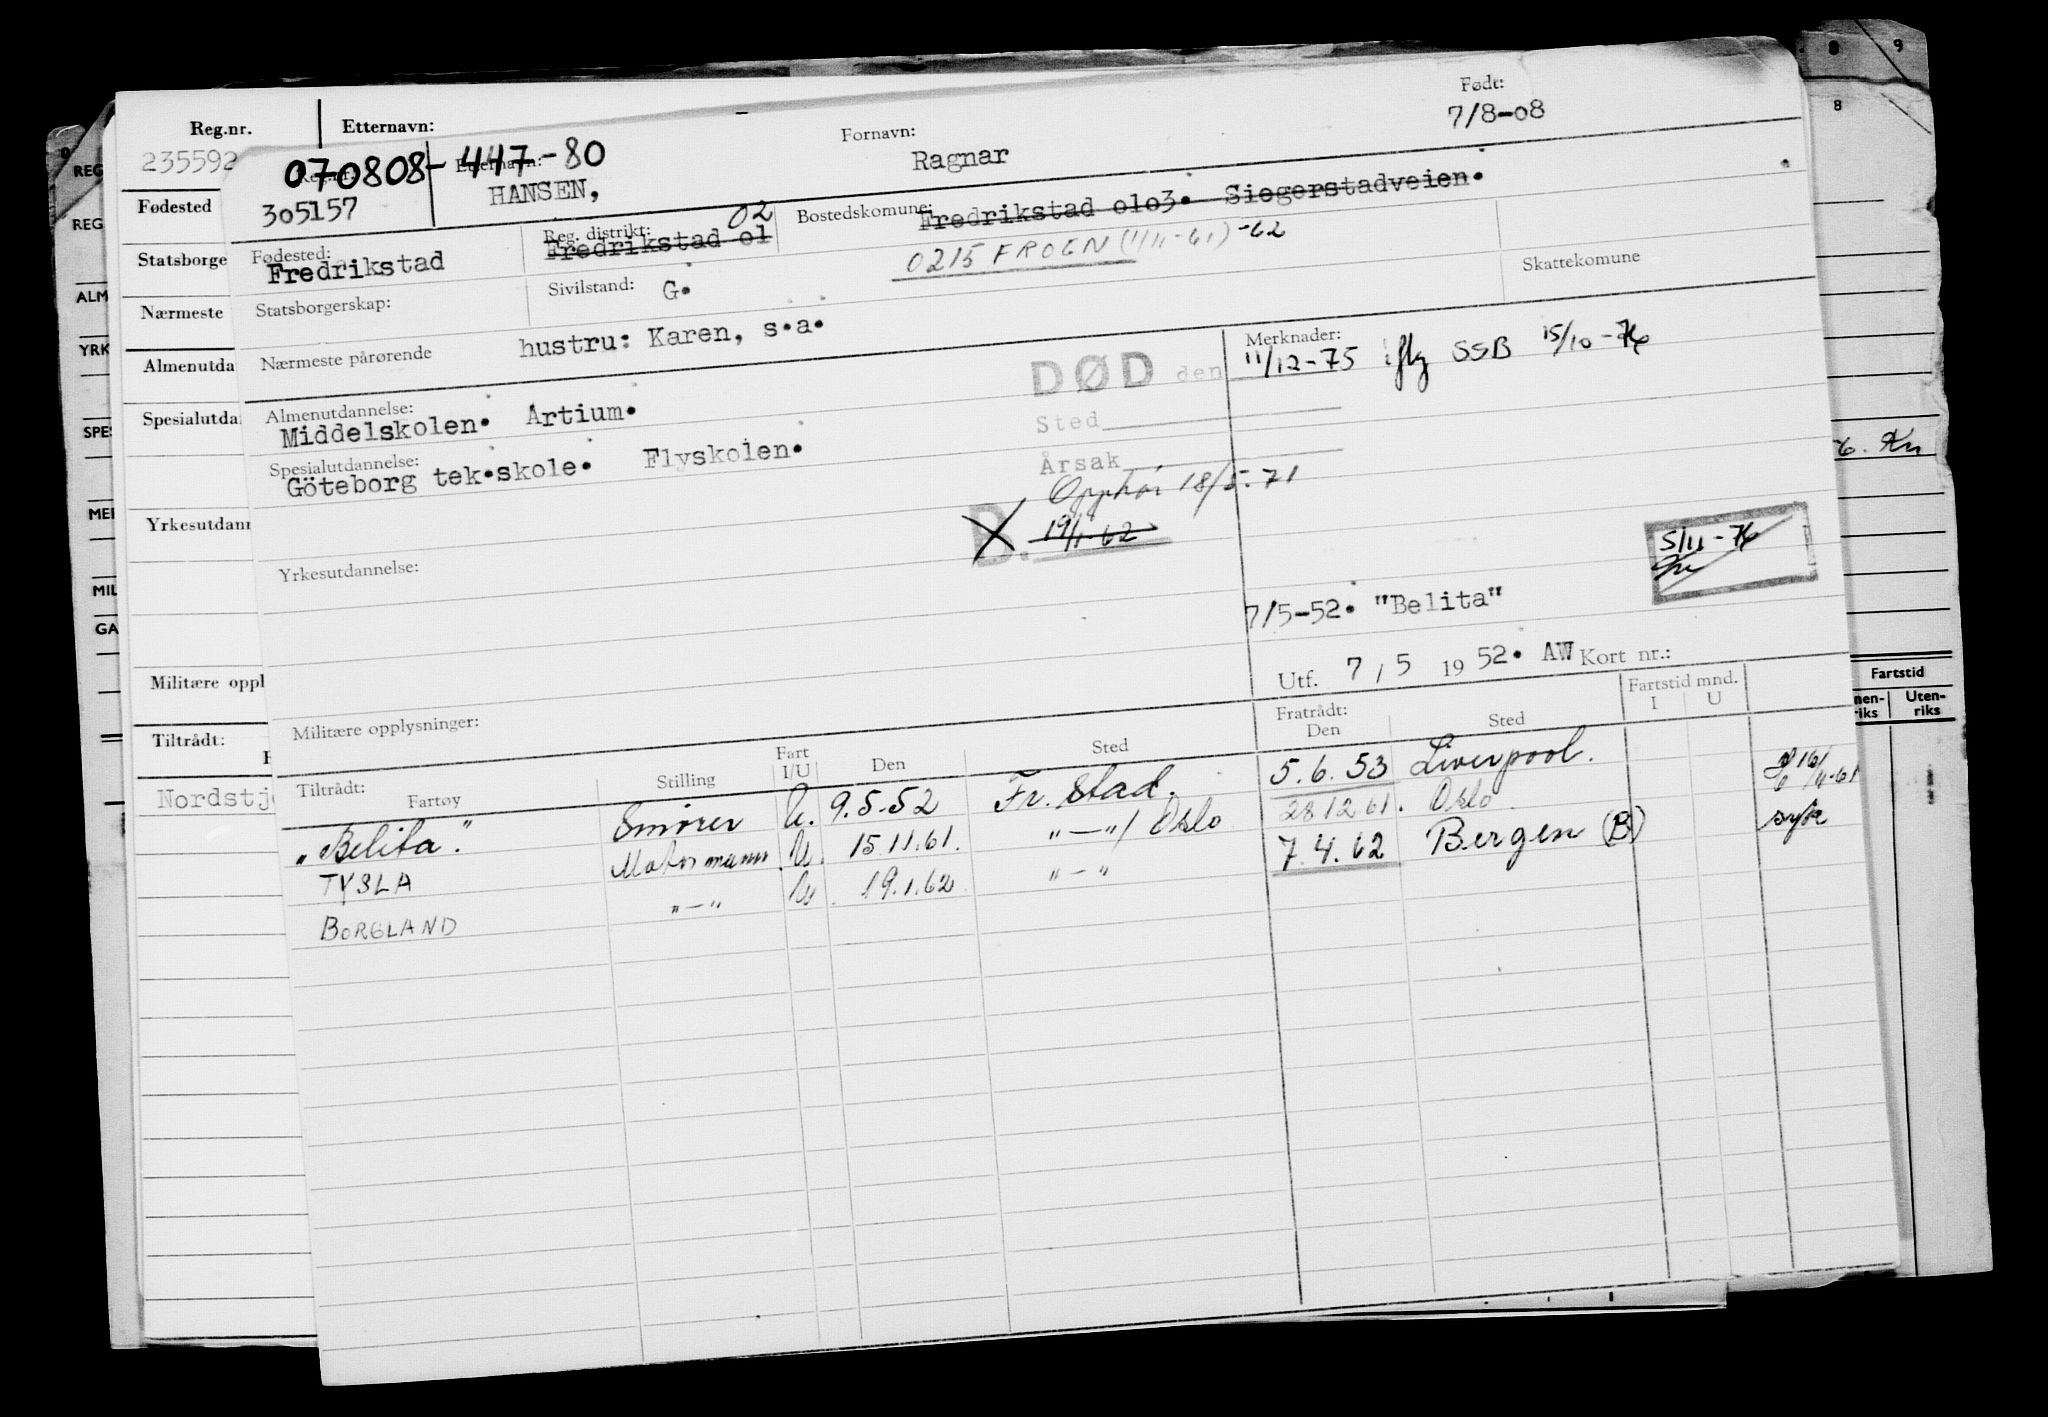 Reg.nr.
Etternavn:
235592
070808-447-80
305157
HANSEN,
Fornavn:
Ragnar
Født:
7/8-08
Fødested
Statsborge
Nærmeste
Almenutda
Spesialutda
Yrkesutdann
Militære oppl
Tiltrådt:
Nordstj
Fødested:
Fredrikstad
Reg. distrikt: 02
Fredrikstad 01
Bostedskomune:
Fredrikstad 0103. Siegerstadveien.
0215 FROGN (1/11-61) -62
Statsborgerskap:
Sivilstand: G.
Skattekomune
Nærmeste pårørende hustru: Karen, s.a.
Merknader:
DØD den 11/12-75 iflg SSB 15/10-76
Sted
Årsak
Almenutdannelse:
Middelskolen. Artium.
Spesialutdannelse:
Göteborg tek.skole. Flyskolen.
Opphør 18/5-71
B. 19/1-62
5/11-76
Yrkesutdannelse:
7/5-52. "Belita"
Utf. 7/5 1952. AW Kort nr.:
Militære opplysninger:
Tiltrådt:
Fartøy
Stilling
Fart I/U
Den
Sted
Fratrådt:
Den
Sted
Fartstid mnd.
I U
"Belita". Smører U. 9.5.52 Fr.stad. 5.6.53 Liverpool.
TYSLA Motormann U. 15.11.61. "-"/Oslo 28.12.61. Oslo.
BORGLAND "-" U. 19.1.62 "-" 7.4.62 Bergen (B) syk
REG
REG
ALM
YRK
SPES
MEI
MIL
GA
8 9
8
Fartstid
nen-
riks
Uten-
riks